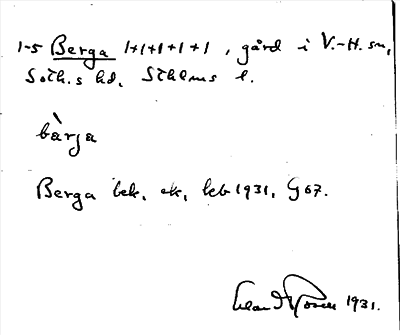 1-5 Berga 1+1+1+1+1, gård i V.-H. sn,
Soth.s hd, Sthlms l.
bàrja
Berga bek. ek. kb 1931, G 67.
1931.